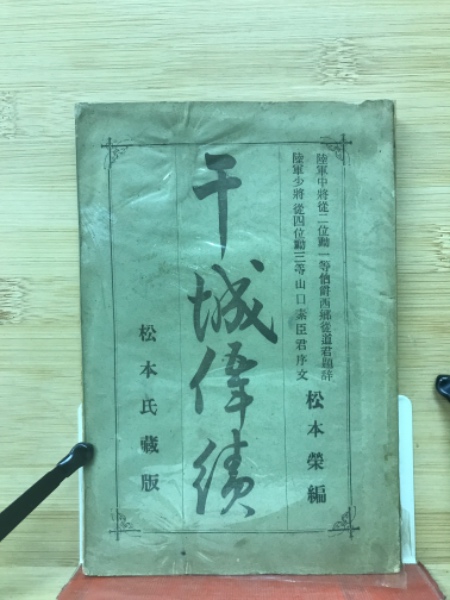 陸軍中將從二位勳一等伯爵西鄕從道君題辭
陸軍少將從四位勳三等山口素臣君序文
松本榮編
干城偉績
松本氏藏版